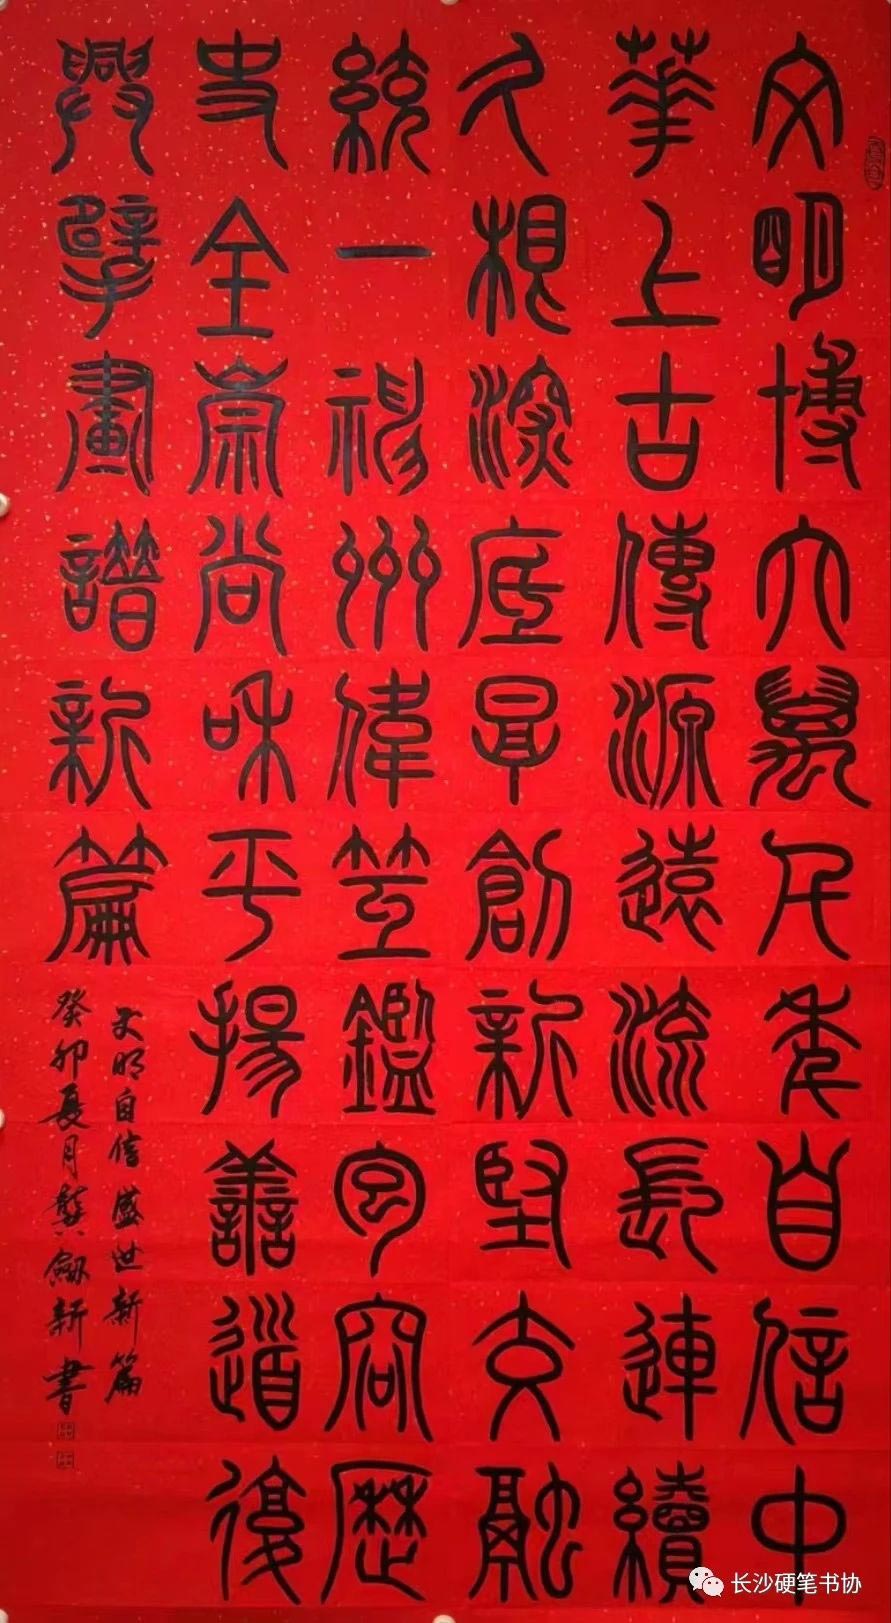 文明博大萬千年自信中
華上古傳源遠流長連續
久根深底厚創新堅交融
統一神州偉互鑑包容歷
史全崇尚和平揚善道復
興擘畫譜新篇
文明自信盛世新篇
癸卯夏月龔劍新書
长沙硬笔书协